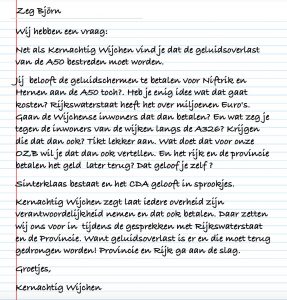 Zeg Björn
Wij hebben een vraag:
Net als Kernachtig Wijchen vind je dat de geluidsoverlast
van de A50 bestreden moet worden.
Jij belooft de geluidschermen te betalen voor Niftrik en
Hernen aan de A50 toch?. Heb je enig idee wat dat gaat
kosten? Rijkswaterstaat heeft het over miljoenen Euro's.
Gaan de Wijchense inwoners dat dan betalen? En wat zeg je
tegen de inwoners van de wijken langs de A326? Krijgen
die dat dan ook? Tikt lekker aan. Wat doet dat voor onze
OZB wil je dat dan ook vertellen. En het rijk en de provincie
betalen het geld later terug? Dat geloof je zelf ?
Sinterklaas bestaat en het CDA gelooft in sprookjes.
Kernachtig Wijchen zegt laat iedere overheid zijn
verantwoordelijkheid nemen en dat ook betalen. Daar zetten
wij ons voor in tijdens de gesprekken met Rijkswaterstaat
en de Provincie. Want geluidsoverlast is er en die moet terug
gedrongen worden! Provincie en Rijk ga aan de slag.
Groetjes,
Kernachtig Wijchen